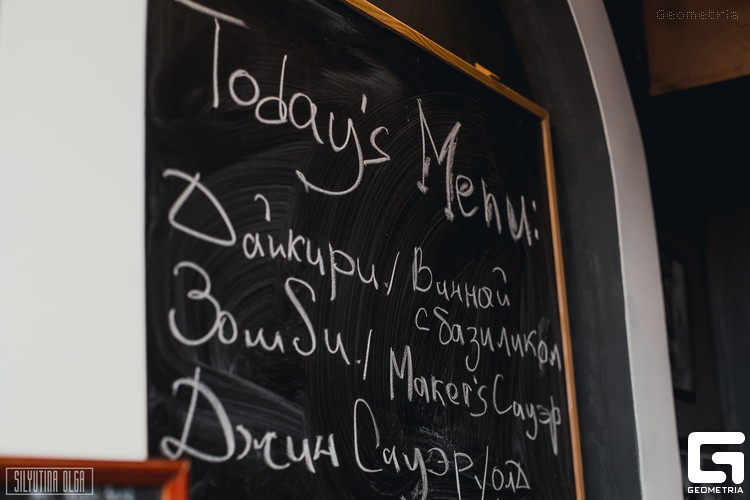 Geometria
Today's Menu:
Дайкири / Винной
с базиликом
Зомби / Maker's Сауэр
Джин Сауэр/олд
SILYUTINA OLGA
GEOMETRIA